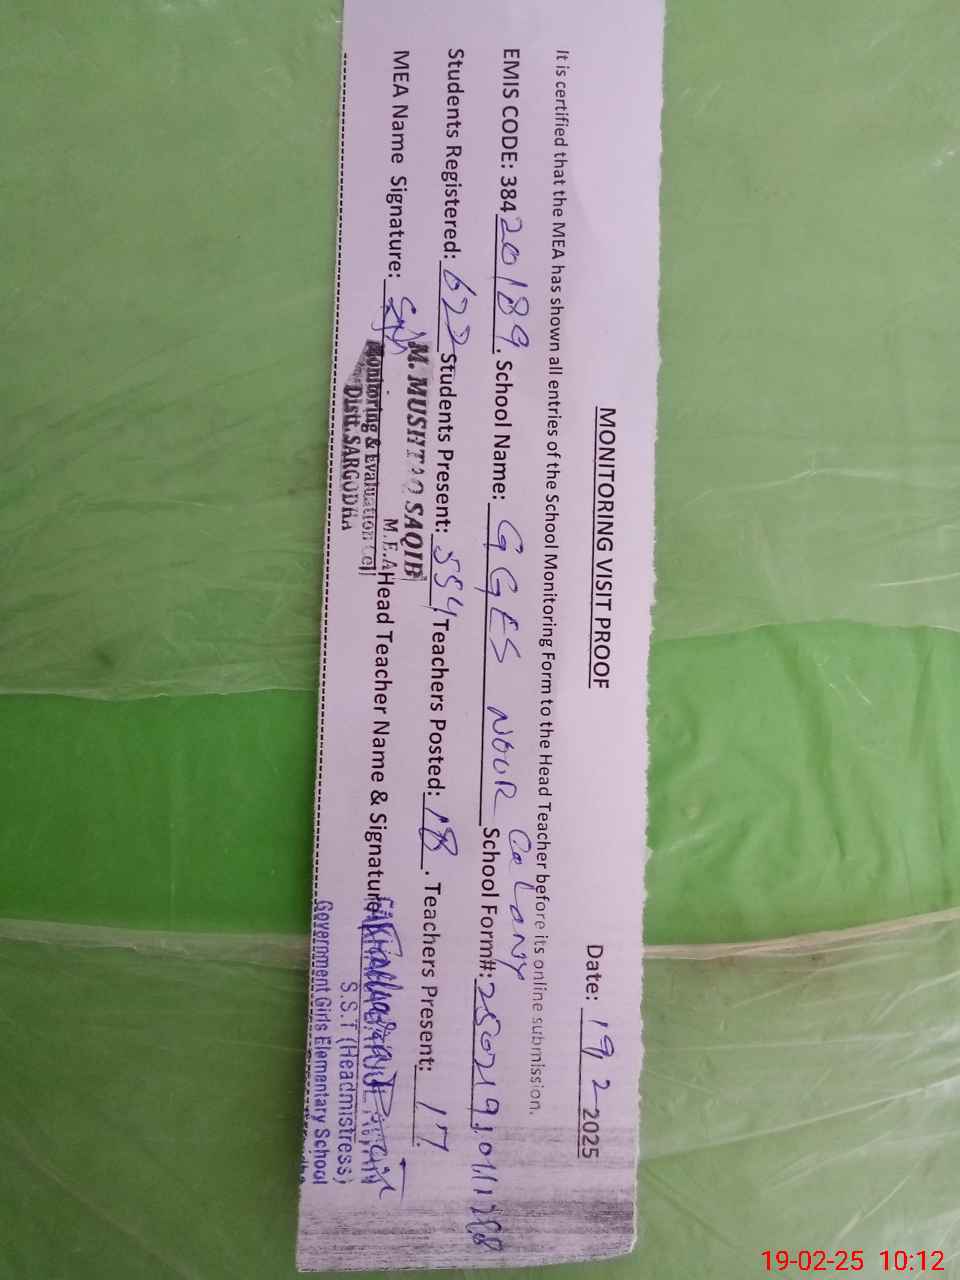 MONITORING VISIT PROOF
Date: 19 2 2025
It is certified that the MEA has shown all entries of the School Monitoring Form to the Head Teacher before its online submission.
EMIS CODE: 38420189. School Name: GGES NOUR ColoNY School Form#:
Students Registered: 622 Students Present: 554, Teachers Posted: 18. Teachers Present: 17.
MEA Name Signature: Head Teacher Name & Signature
M. MUSHTAQ SAQIB
M.E.A
Monitoring & Evaluation Cell
Distt. SARGODHA
S.S.T (Headmistress)
Government Girls Elementary School
19-02-25 10:12